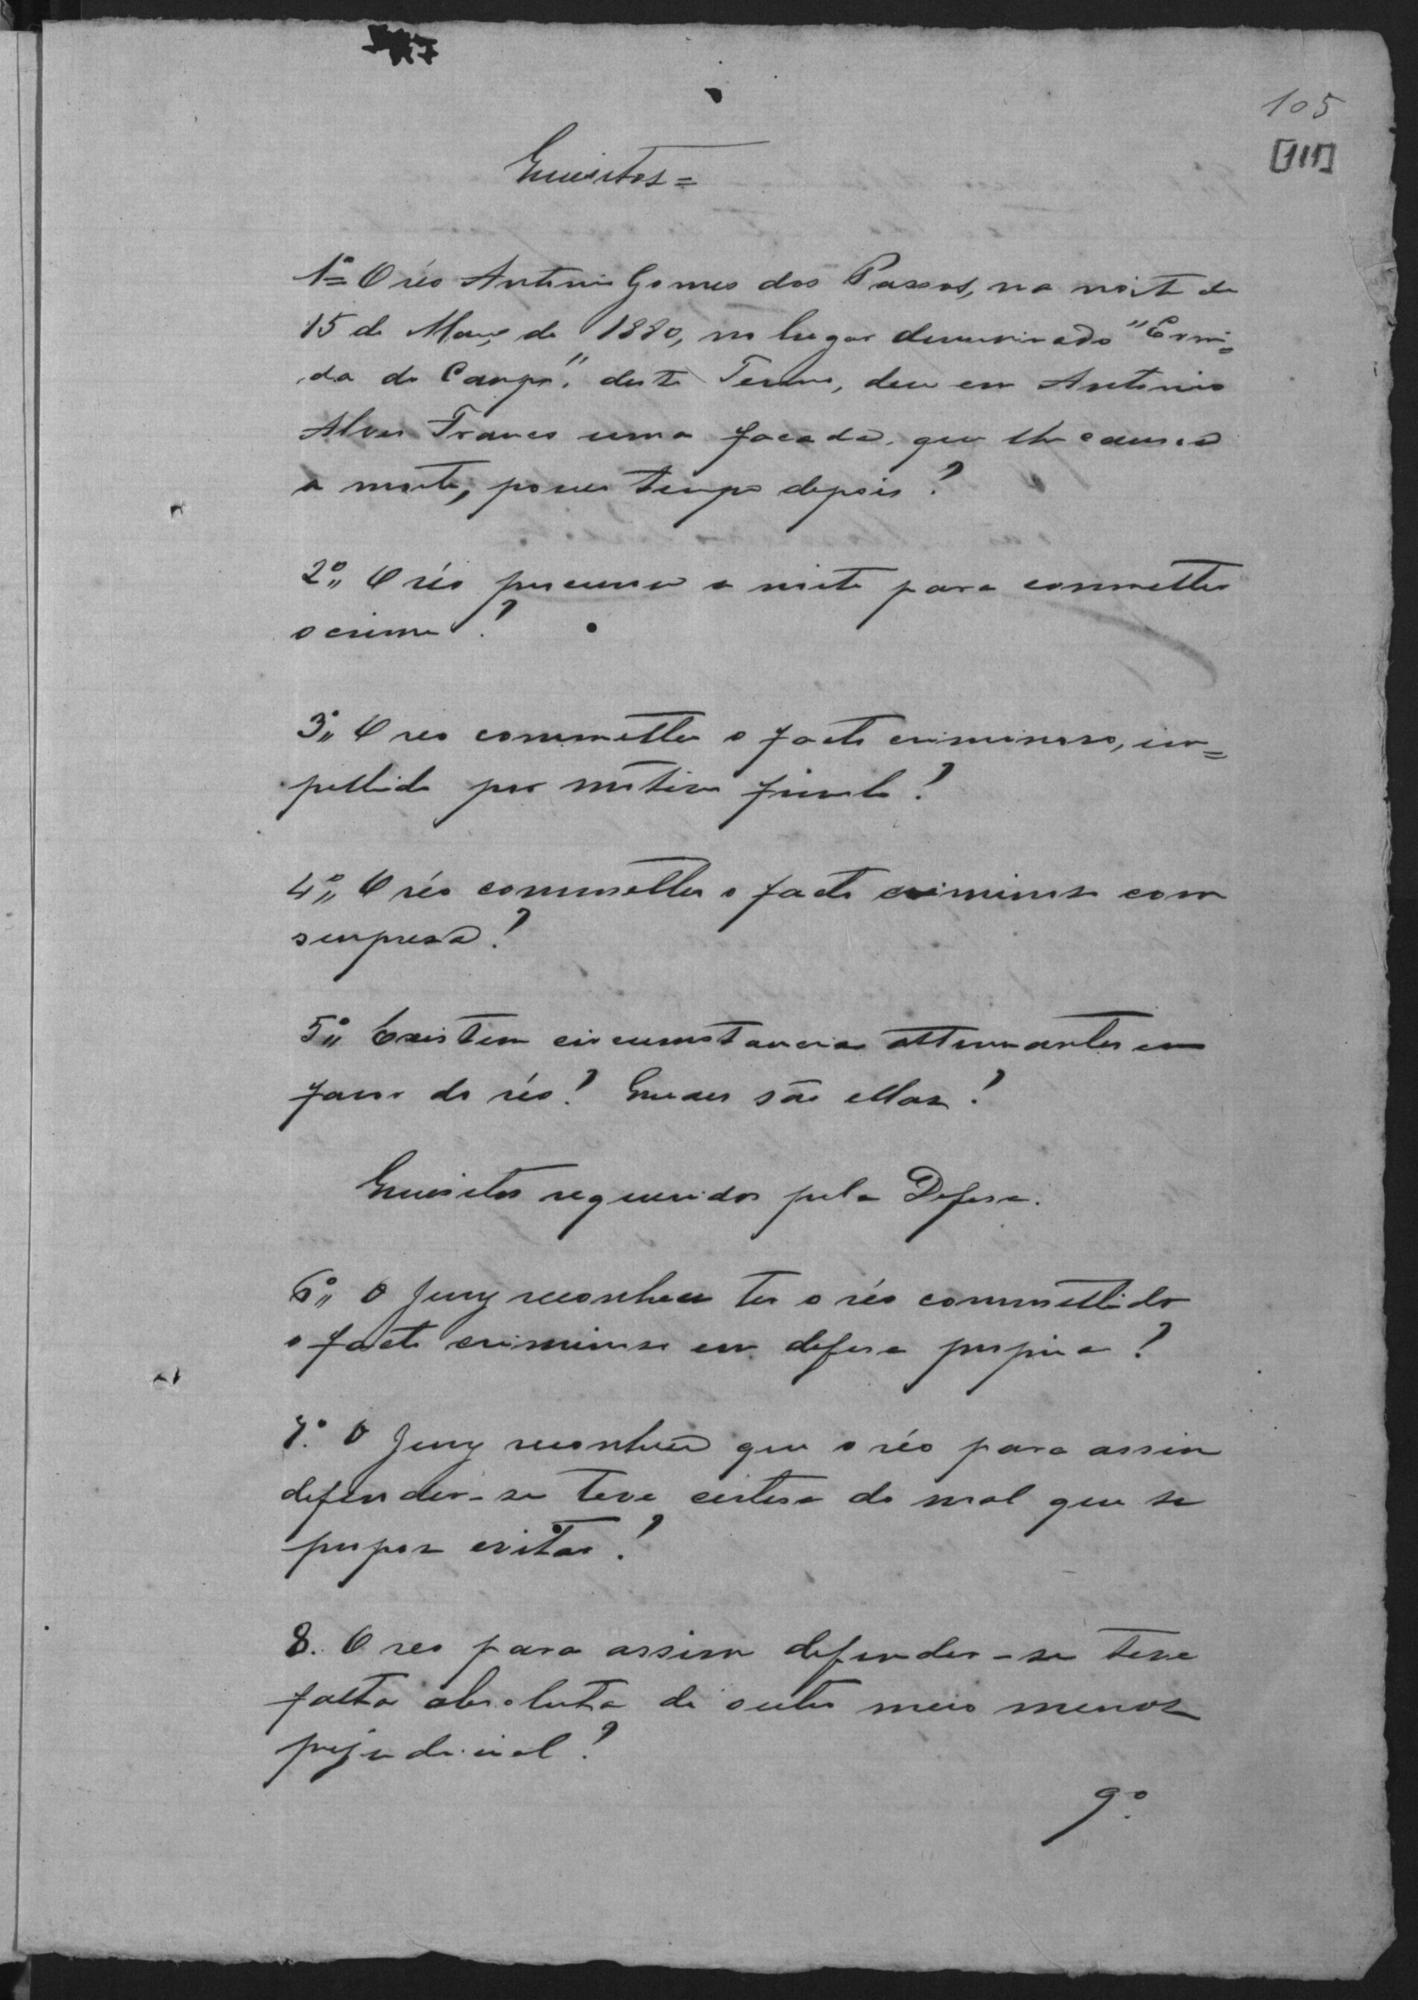 105
[111]
Quesitos =
1º O réo Antonio Gomes dos Passos, na noite de
15 de Março de 1880, no lugar denominado "Ermi=
da do Campo", deste Termo, deu em Antonio
Alves Franco uma facada, que lhe causou
a morte, pouco tempo depois?
2º O réo procurou a noite para commetter
o crime?
3º O reo commetteu o facto criminoso, im=
pellido por motivo frivolo?
4º O réo commetteu o facto criminoso com
surpresa?
5º Existem circumstancias attenuantes em
favor do réo? Quaes são ellas?
Quesitos requeridos pela Defesa.
6º O Jury reconheceu ter o réo commettido
o facto criminoso em defesa propria?
7º O Jury reconheceu que o réo para assim
defender-se teve certesa do mal que se
propoz evitar?
8. O reo para assim defender-se teve
falta absoluta de outro meio menos
prejudicial?
9º